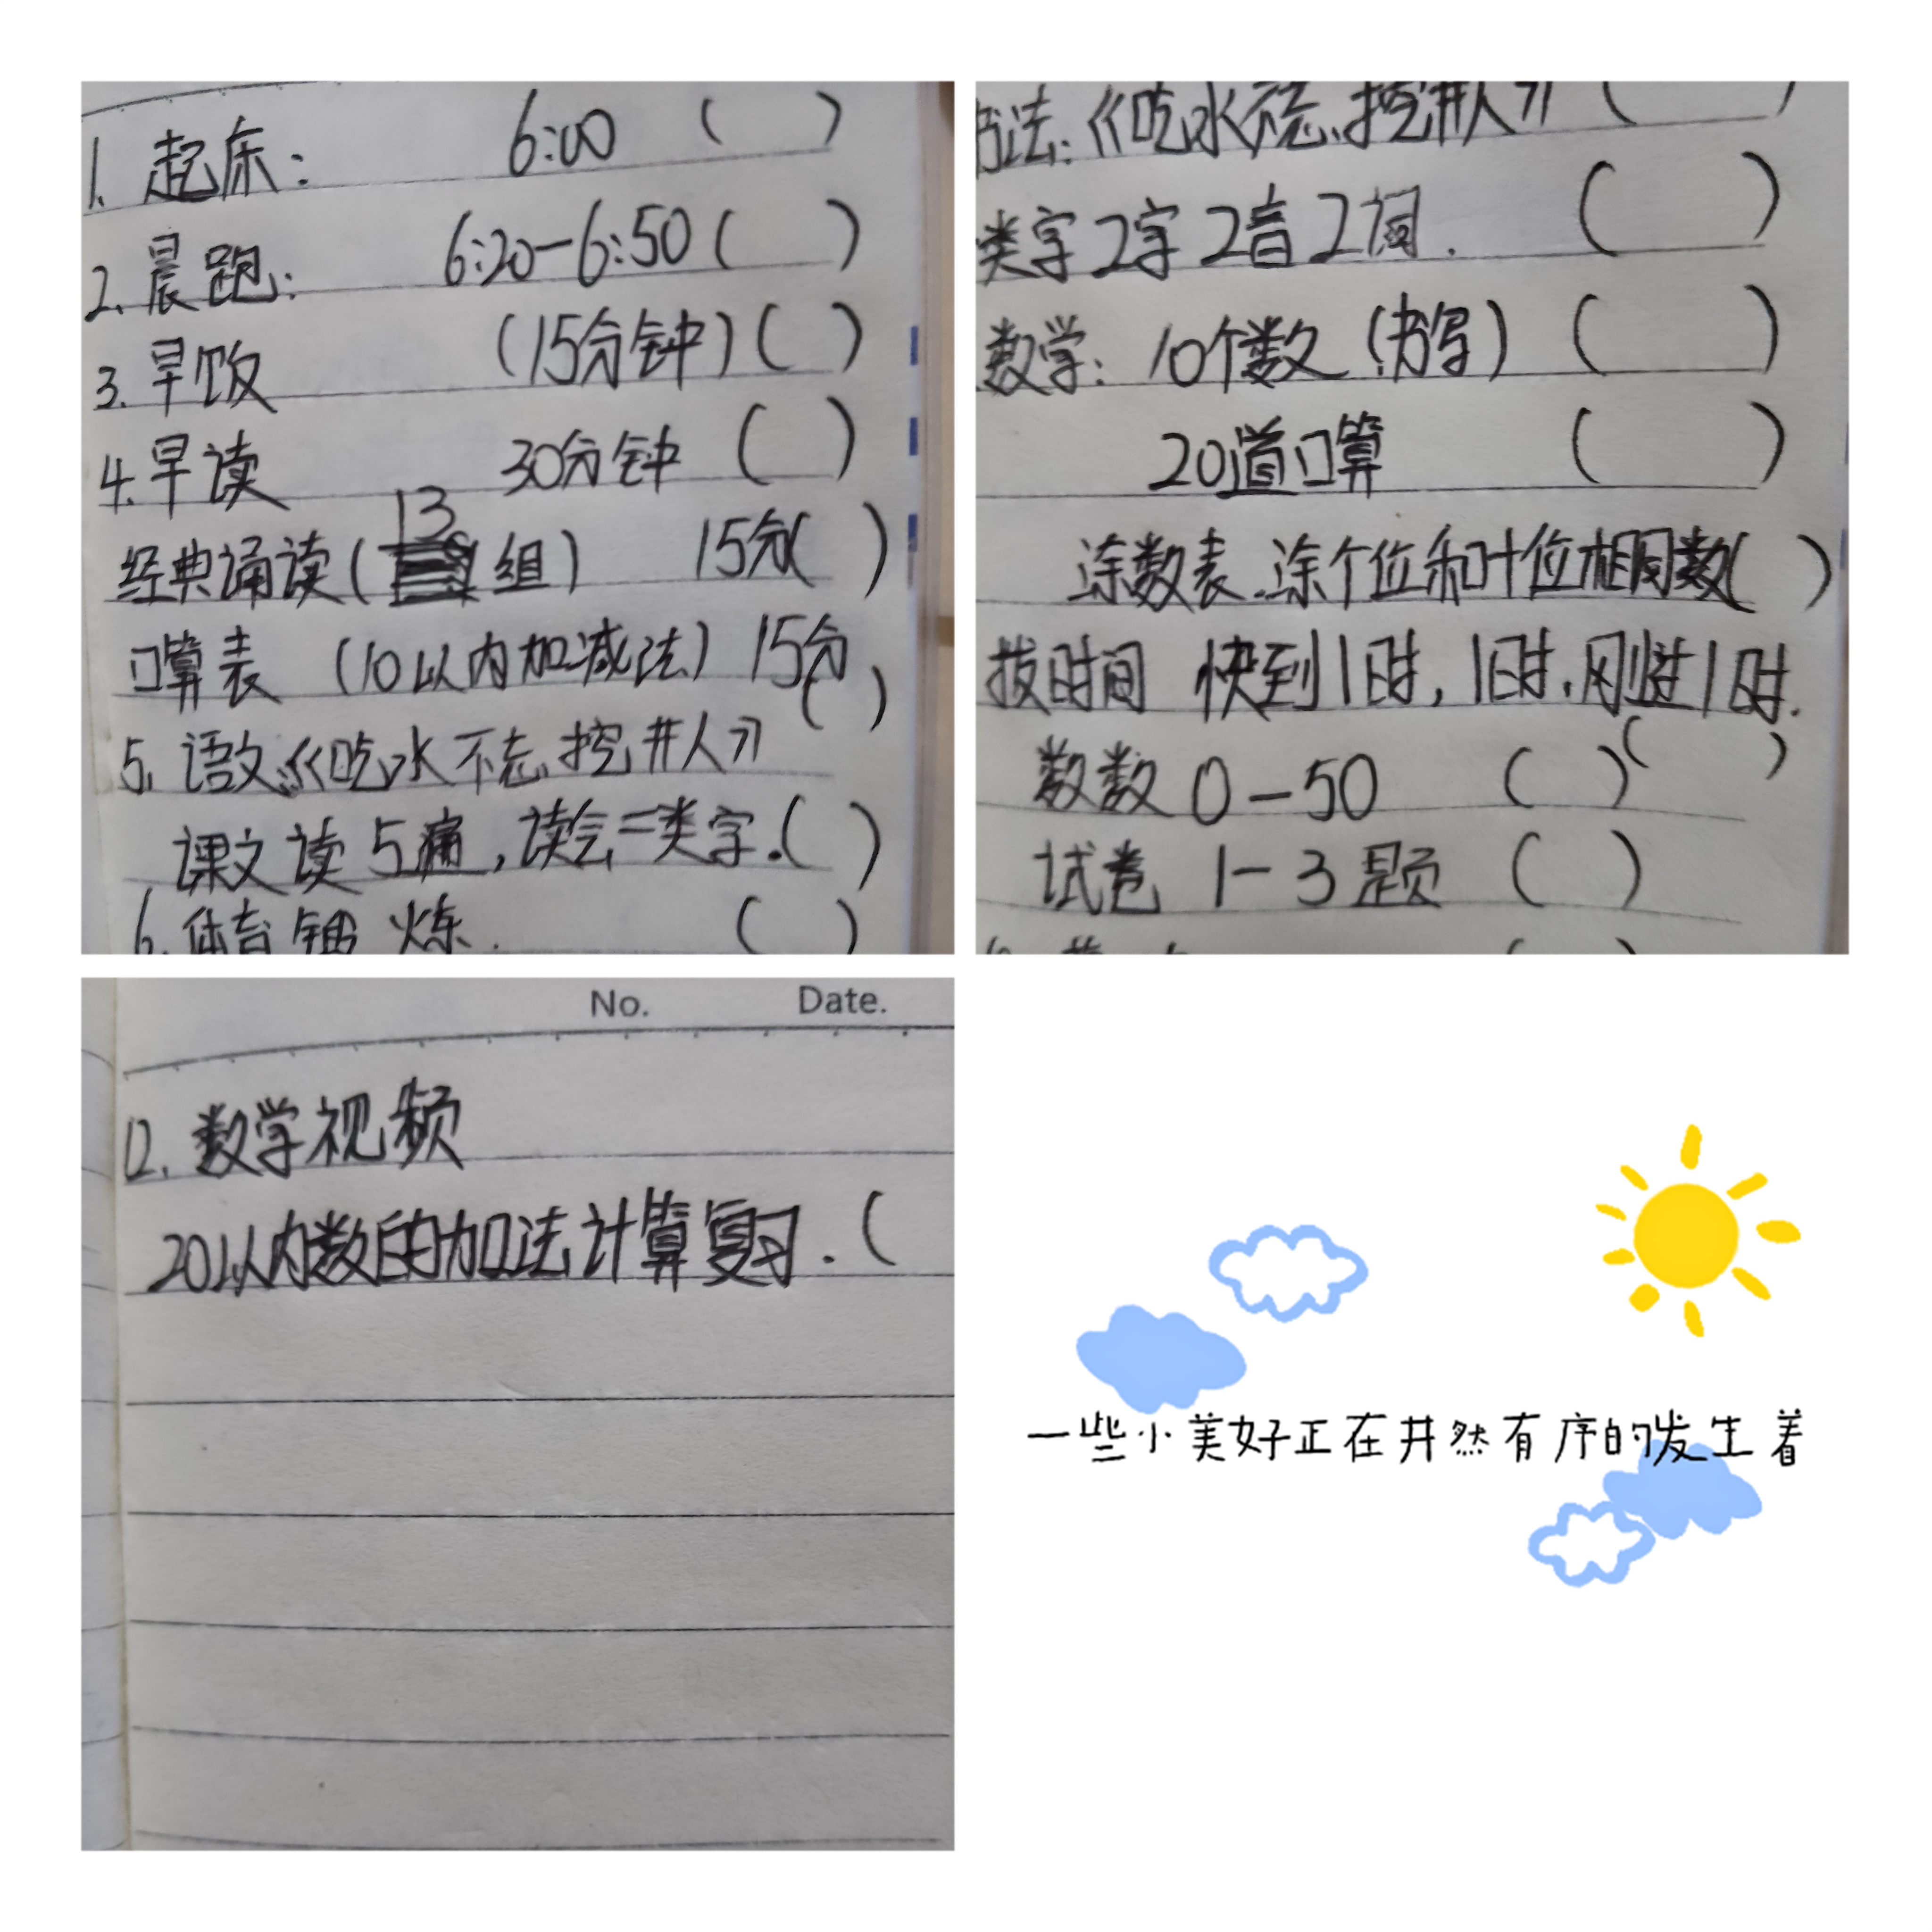 1. 起床： 6:00 ( )
2. 晨跑： 6:20-6:50 ( )
3. 早饭 (15分钟) ( )
4. 早读 30分钟 ( )
经典诵读 (13组) 15分 ( )
口算表 (10以内加减法) 15分 ( )
5. 语文：《吃水不忘挖井人》
课文读5痛，读会二类字. ( )
6. 体育锻炼. ( )
书法：《吃水不忘挖井人》 ( )
类字2字2音2词. ( )
数学：10个数 (书写) ( )
20道口算 ( )
涂数表.涂个位和十位相同数 ( )
拨时间 快到1时，1时，刚过1时. ( )
数数 0-50 ( )
试卷 1-3题 ( )
No. Date.
12. 数学视频
20以内数的加法计算复习. (
一些小美好正在井然有序的发生着